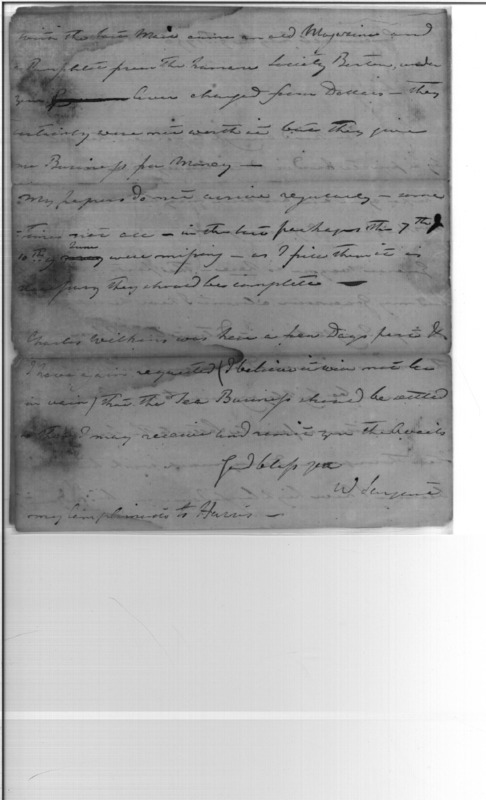 with the last Mail came an old Magazine and
a Pamphlet from The Humane Society Boston, under
your have charged four Dollars — they
certainly were not worth it but they give
no Business for Money —
My papers do not arrive regularly — some
times not all — in the last perhaps the 7th &
10th June were missing — as I file them it is
necessary they should be complete —
Charles Wilkins was here a few Days past &
I have again requested (I believe it will not be
in vain) that the Tea Business should be settled
so that I may receive and remit you the Avails
God bless you
W Sargent
my compliments to Harris —